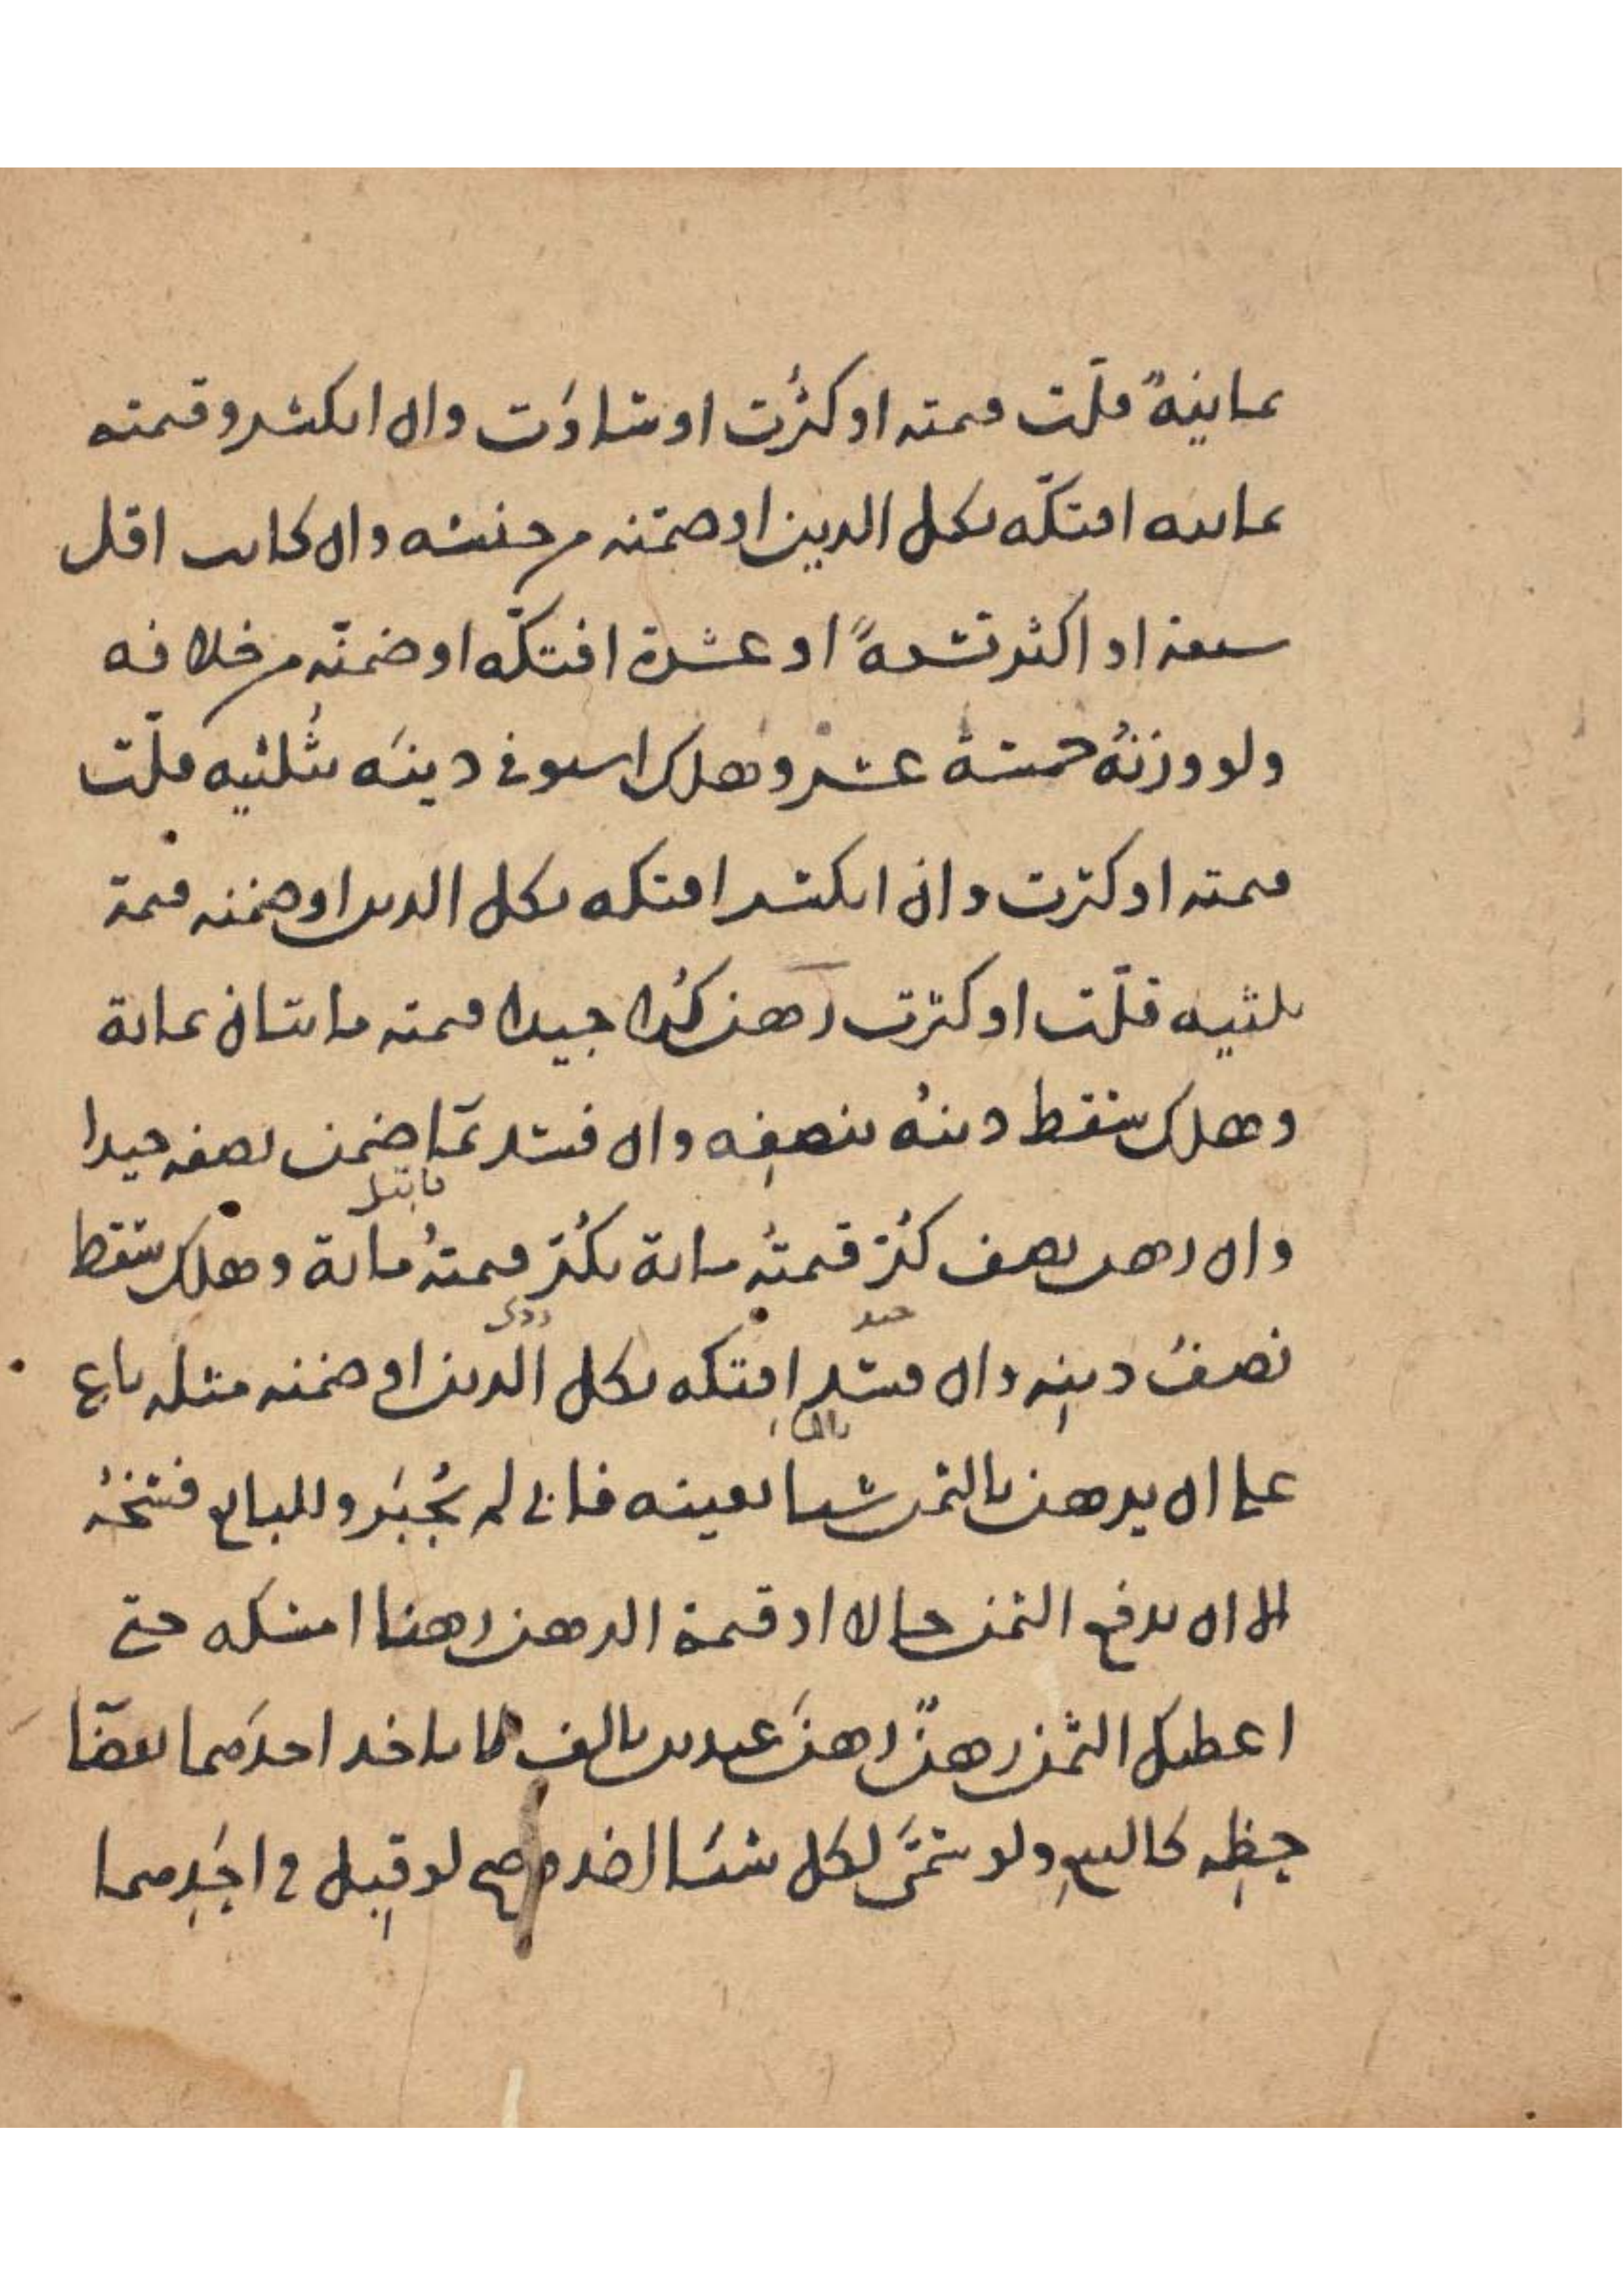 بمانيةً قلّت قيمته او كثرت او ساوَت وان انكسر وقيمته
بمانيه افتكّه بكل الدين او ضمّنه من جنسه وان كانت اقل
سبعة او اكثر تسعةً او عشرة افتكّه او ضمنّه من خلافه
ولو وزنُه خمسة عشر وهلك استوفى دينَه بثُلثيه قلّت
قيمته او كثرت وان انكسر افتكه بكل الدين او ضمنه قيمة
ثلثيه قلّت او كثرت رهن كُرا جيدا قيمته مائتان بمائة
وهلك سقط دينُه بنصفِه وان فسد بمَا ضمن نصفه جيدا
فابتل
وان رهن نصف كُرّ قيمتُه مائة بكُرّ قيمتُه مائة وهلك سقط
جيد ردى
نصفُ دينِه وان فسد افتكه بكل الدين او ضمنه مثله باع
بالماء
على ان يرهن بالثمن شيئا بعينه فابى لم يُجبَر وللبائع فسخُه
الا ان يدفع الثمن حالا او قيمة الرهن رهنا امسكه حتى
اعطيك الثمن رهنٌ رهنَ عبدين بالف لا ياخذ احدَهما بقضَا
حِظّه كالبيعِ ولو سمّى لكل شيئا اخذ وصح لو قبِل في احدِهما